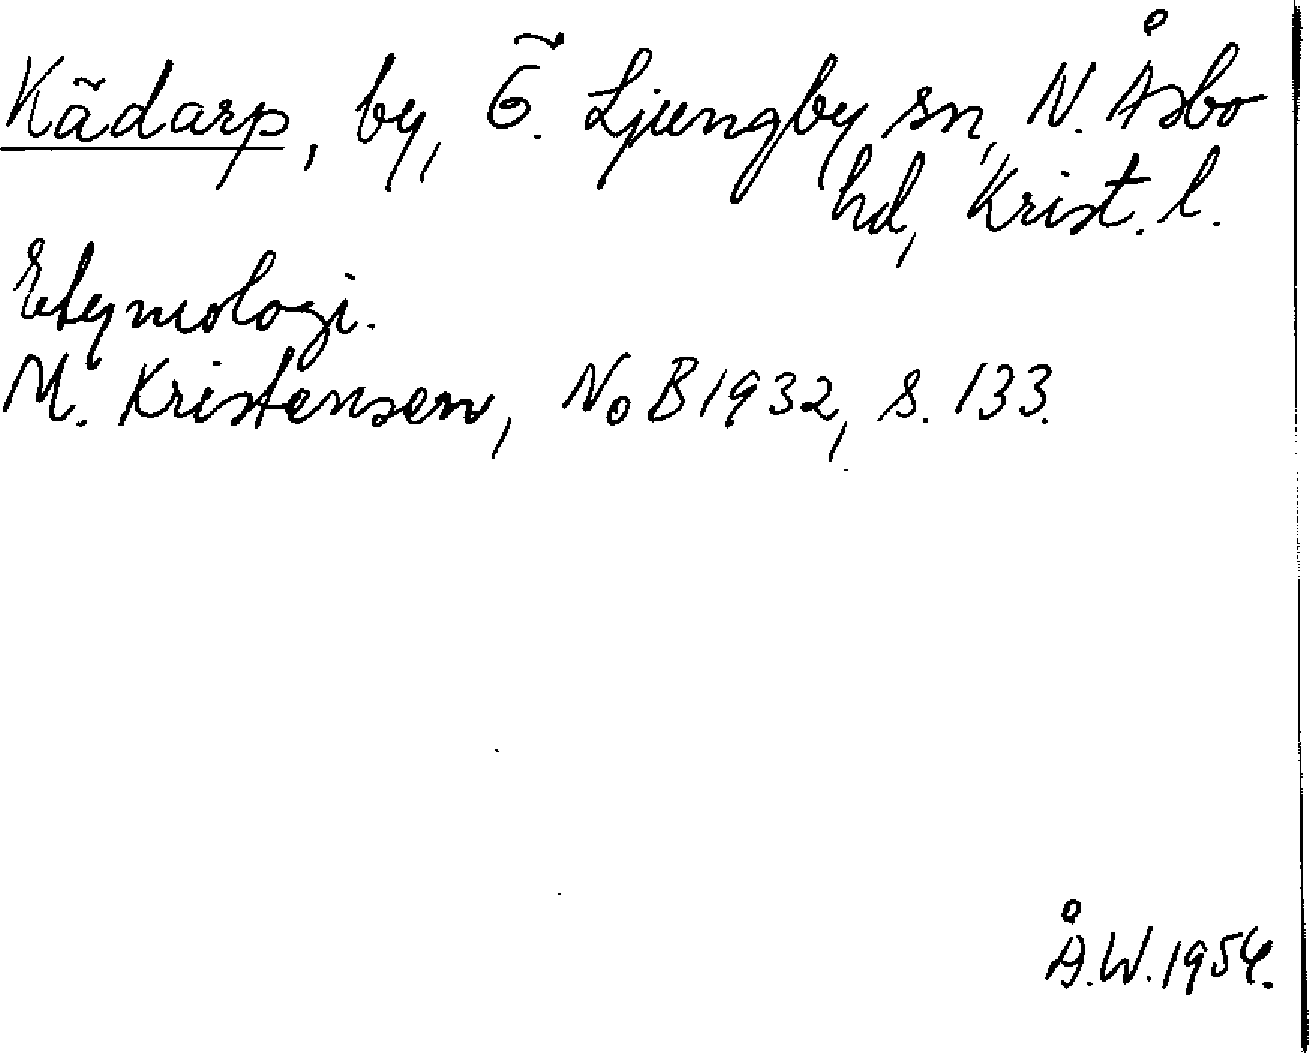 Kädarp, by, Ö. Ljungby sn, N. Åsbo
hd, Krist. l.
Etymologi.
M. Kristensen, NoB 1932, s. 133.
Å.W. 1954.